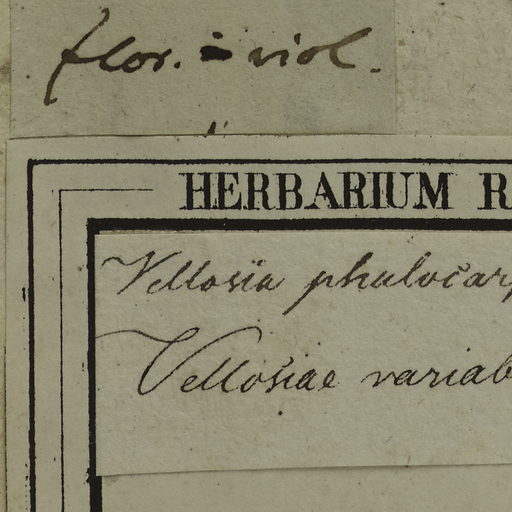 flor. = viol.
HERBARIUM R
Vellosia phalocarp
Vellosiae variab